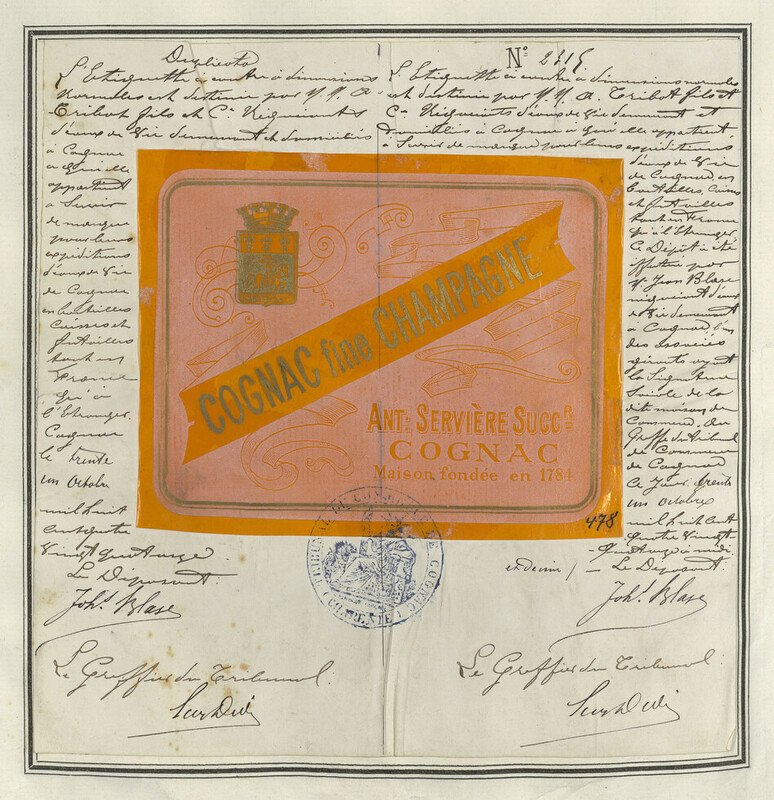 Duplicata
L'Etiquette ci contre à dimensions
normales est destinée par MM. A.
Tribot fils et Cie Négociants
d'eaux de Vie demeurant et domiciliés
à Cognac
à qui elle
appartient
à Servir
de marque
pour leurs
expéditions
d'eaux de Vie
de Cognac
en bouteilles
Caisses et
futailles
tant en
France
qu'à
l'Etranger.
Cognac
le trente
un Octobre
mil huit
cent quatre
Vingt quatorze
Le Déposant:
Joh.s Blase
Le Greffier du Tribunal:
N° 2315
L'Etiquette ci contre à dimensions normales
est destinée par MM. A. Tribot fils et
Cie Négociants d'eaux de Vie demeurant et
domiciliés à Cognac à qui elle appartient
à Servir de marque pour leurs expéditions
d'eaux de Vie
de Cognac en
bouteilles, Caisses
et futailles
tant en France
qu'à l'Etranger.
Ce Dépôt a été
effectué par
Mr Jean Blase
négociant d'eaux
de Vie demeurant
à Cognac, l'un
des associés
gérants ayant
la Signature
Sociale de la
dite maison de
Commerce, au
Greffe du Tribunal
de Commerce
de Cognac
Ce jour, trente
un Octobre
mil huit cent
quatre Vingt
quatorze à midi
et demie / Le Déposant:
Joh.s Blase
Le Greffier du Tribunal:
COGNAC fine CHAMPAGNE
ANT: SERVIÈRE SUCCR
COGNAC
Maison fondée en 1784.
478
TRIBUNAL DE COMMERCE DE COGNAC
(CHARENTE)